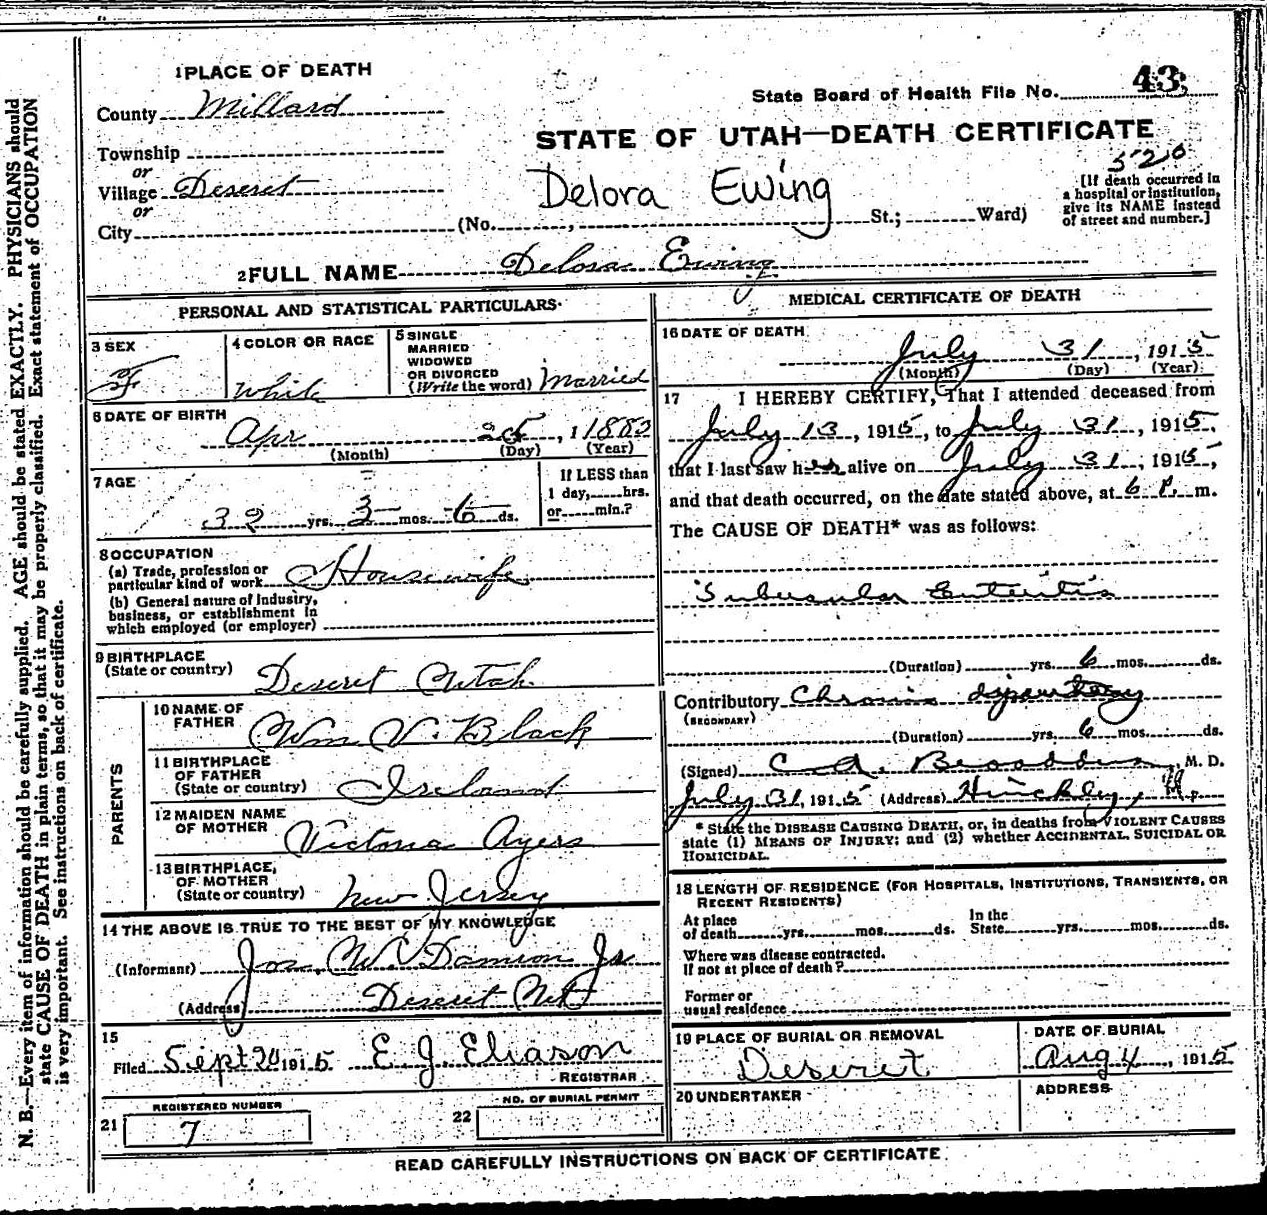 N. B.—Every item of information should be carefully supplied. AGE should be stated EXACTLY. PHYSICIANS should
state CAUSE OF DEATH in plain terms, so that it may be properly classified. Exact statement of OCCUPATION
is very important. See instructions on back of certificate.
1 PLACE OF DEATH
County Millard
Township
or
Village Deseret
or
City
State Board of Health File No. 43
STATE OF UTAH—DEATH CERTIFICATE
520
Delora Ewing
(No. , St.; Ward)
[If death occurred in
a hospital or institution,
give its NAME instead
of street and number.]
2 FULL NAME Delora Ewing
PERSONAL AND STATISTICAL PARTICULARS
3 SEX
F
4 COLOR OR RACE
White
5 SINGLE
MARRIED
WIDOWED
OR DIVORCED
(Write the word) Married
6 DATE OF BIRTH
Apr 25, 1883
(Month) (Day) (Year)
7 AGE
32 yrs. 3 mos. 6 ds.
If LESS than
1 day, hrs.
or min.?
8 OCCUPATION
(a) Trade, profession or
particular kind of work Housewife
(b) General nature of industry,
business, or establishment in
which employed (or employer)
9 BIRTHPLACE
(State or country) Deseret Utah
PARENTS
10 NAME OF
FATHER Wm V. Black
11 BIRTHPLACE
OF FATHER
(State or country) Ireland
12 MAIDEN NAME
OF MOTHER Victoria Ayers
13 BIRTHPLACE,
OF MOTHER
(State or country) New Jersey
14 THE ABOVE IS TRUE TO THE BEST OF MY KNOWLEDGE
(Informant) Jos. W. Damron Jr
(Address) Deseret Ut
15
Filed Sept 20 1915 E J Eliason
REGISTRAR
21 REGISTERED NUMBER
7
22 NO. OF BURIAL PERMIT
MEDICAL CERTIFICATE OF DEATH
16 DATE OF DEATH
July 31, 1915
(Month) (Day) (Year)
17 I HEREBY CERTIFY, That I attended deceased from
July 13, 1915, to July 31, 1915,
that I last saw her alive on July 31, 1915,
and that death occurred, on the date stated above, at 6 P. m.
The CAUSE OF DEATH* was as follows:
Tubucular Enteritis
(Duration) yrs. 6 mos. ds.
Contributory Chronic dysentery
(SECONDARY)
(Duration) yrs. 6 mos. ds.
(Signed) C A. Broaddus, M. D.
July 31, 1915 (Address) Hinckley,
* State the DISEASE CAUSING DEATH, or, in deaths from VIOLENT CAUSES
state (1) MEANS OF INJURY; and (2) whether ACCIDENTAL, SUICIDAL OR
HOMICIDAL.
18 LENGTH OF RESIDENCE (FOR HOSPITALS, INSTITUTIONS, TRANSIENTS, OR
RECENT RESIDENTS)
At place
of death yrs. mos. ds.
In the
State yrs. mos. ds.
Where was disease contracted.
If not at place of death?
Former or
usual residence
19 PLACE OF BURIAL OR REMOVAL
Deseret
DATE OF BURIAL
Aug 4, 1915
20 UNDERTAKER
ADDRESS
READ CAREFULLY INSTRUCTIONS ON BACK OF CERTIFICATE